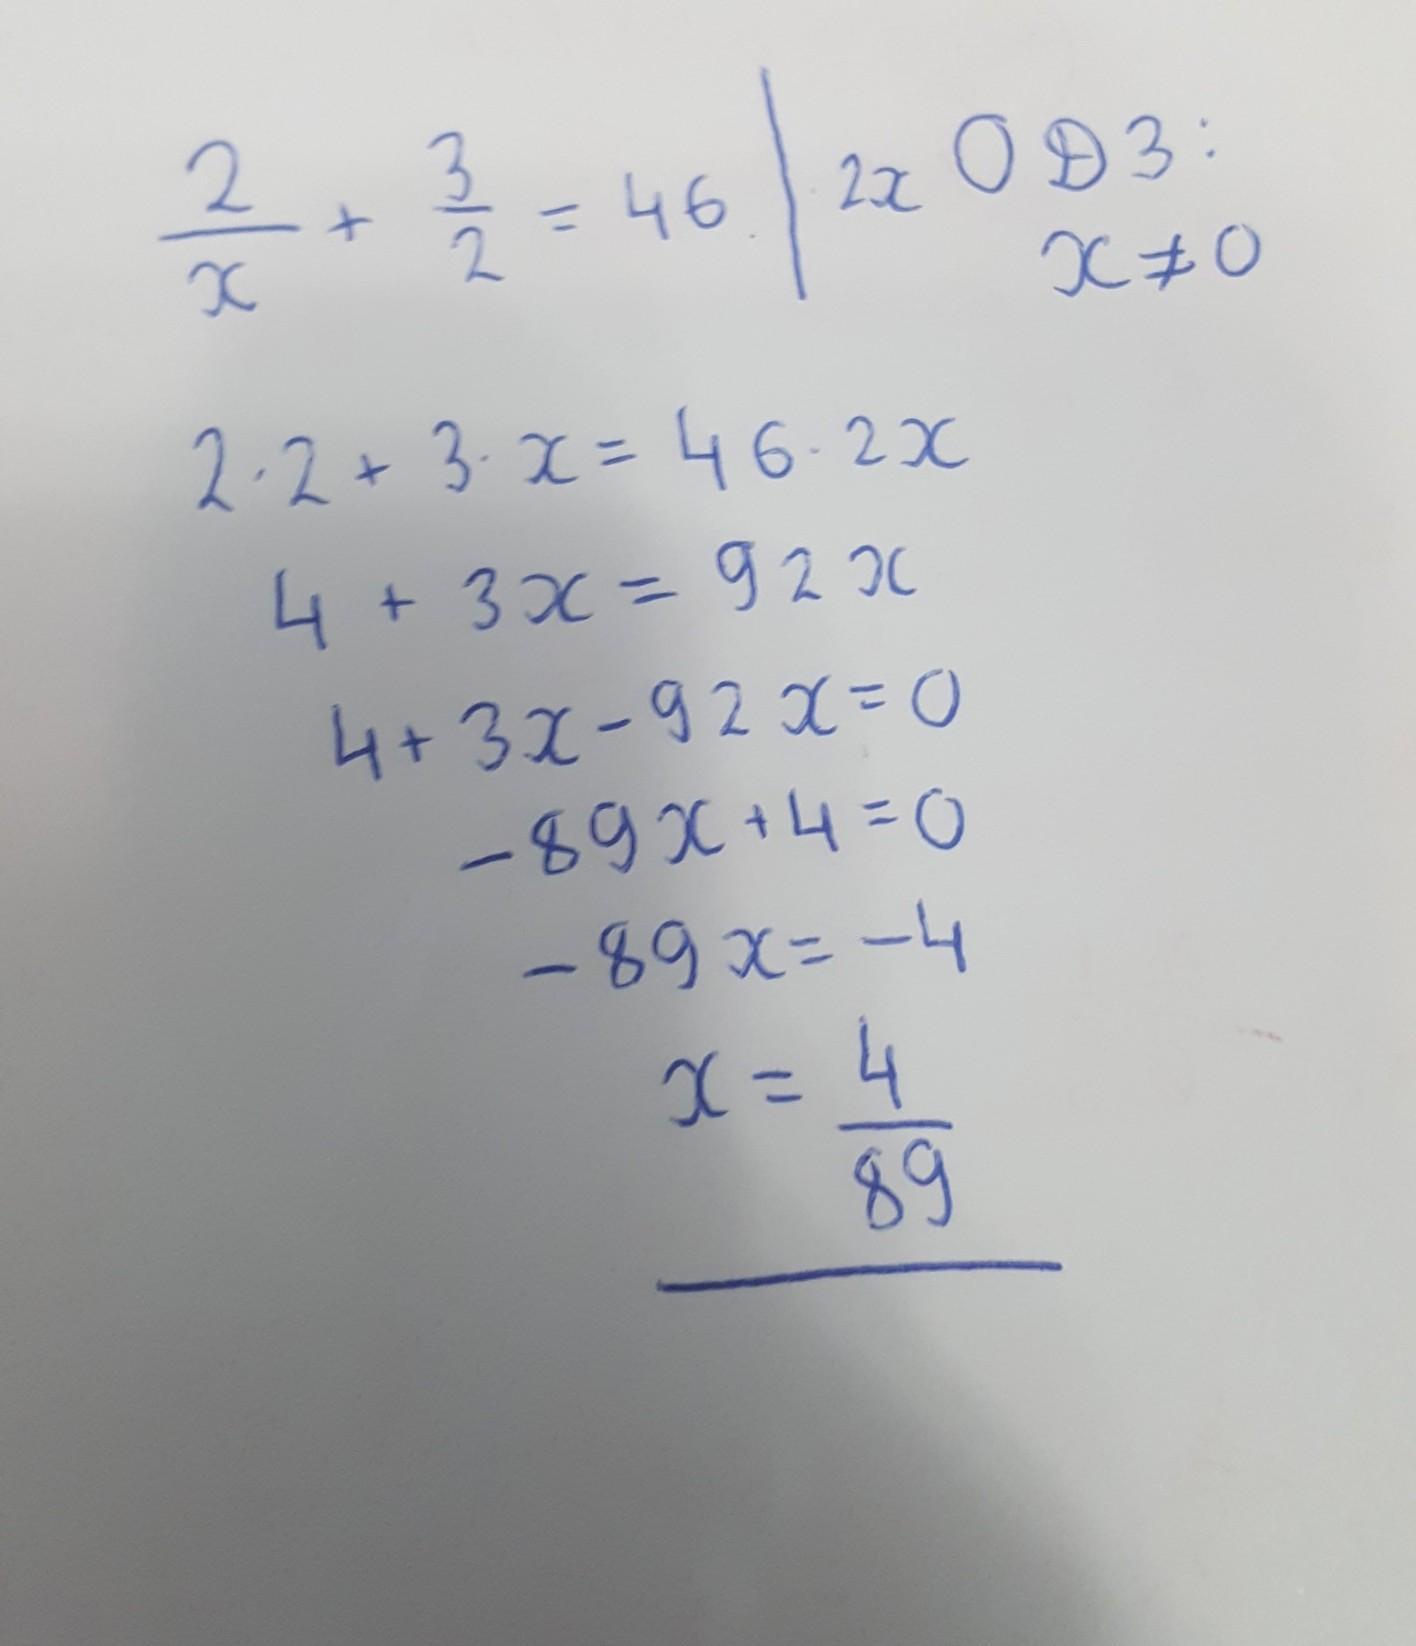 2/x + 3/2 = 46 | · 2x ОДЗ:
x ≠ 0
2·2 + 3·x = 46·2x
4 + 3x = 92x
4 + 3x - 92x = 0
-89x + 4 = 0
-89x = -4
x = 4/89